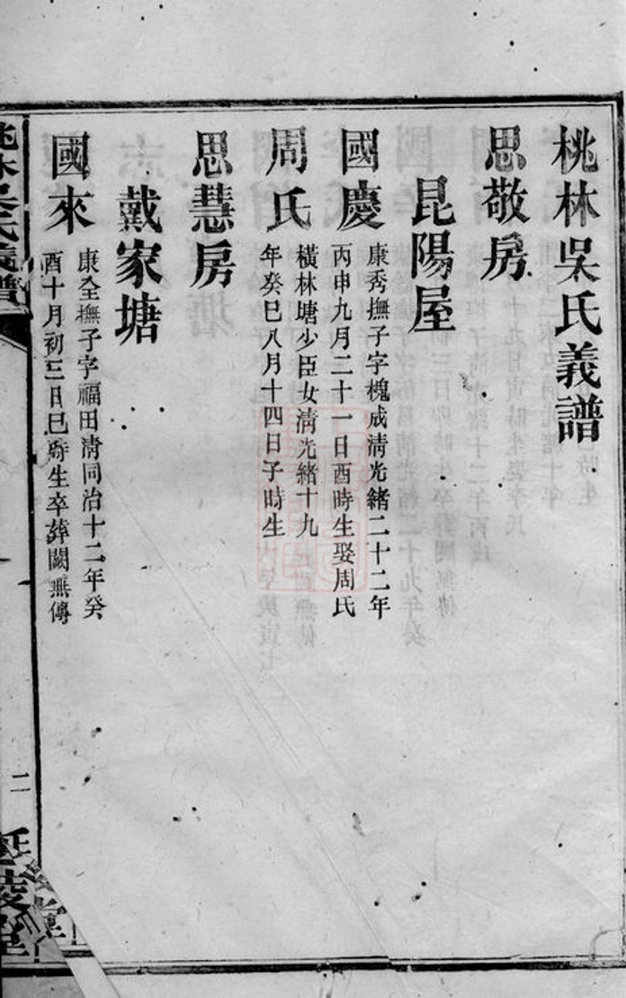 桃林吳氏義譜
思敬房
昆陽屋
國慶
康秀撫子字槐成清光緒二十二年
丙申九月二十一日酉時生娶周氏
周氏
橫林塘少臣女清光緒十九
年癸巳八月十四日子時生
思慧房
戴家塘
國來
康全撫子字福田清同治十二年癸
酉十月初三日巳時生卒葬闕無傳
桃林吳氏義譜
二
延陵堂